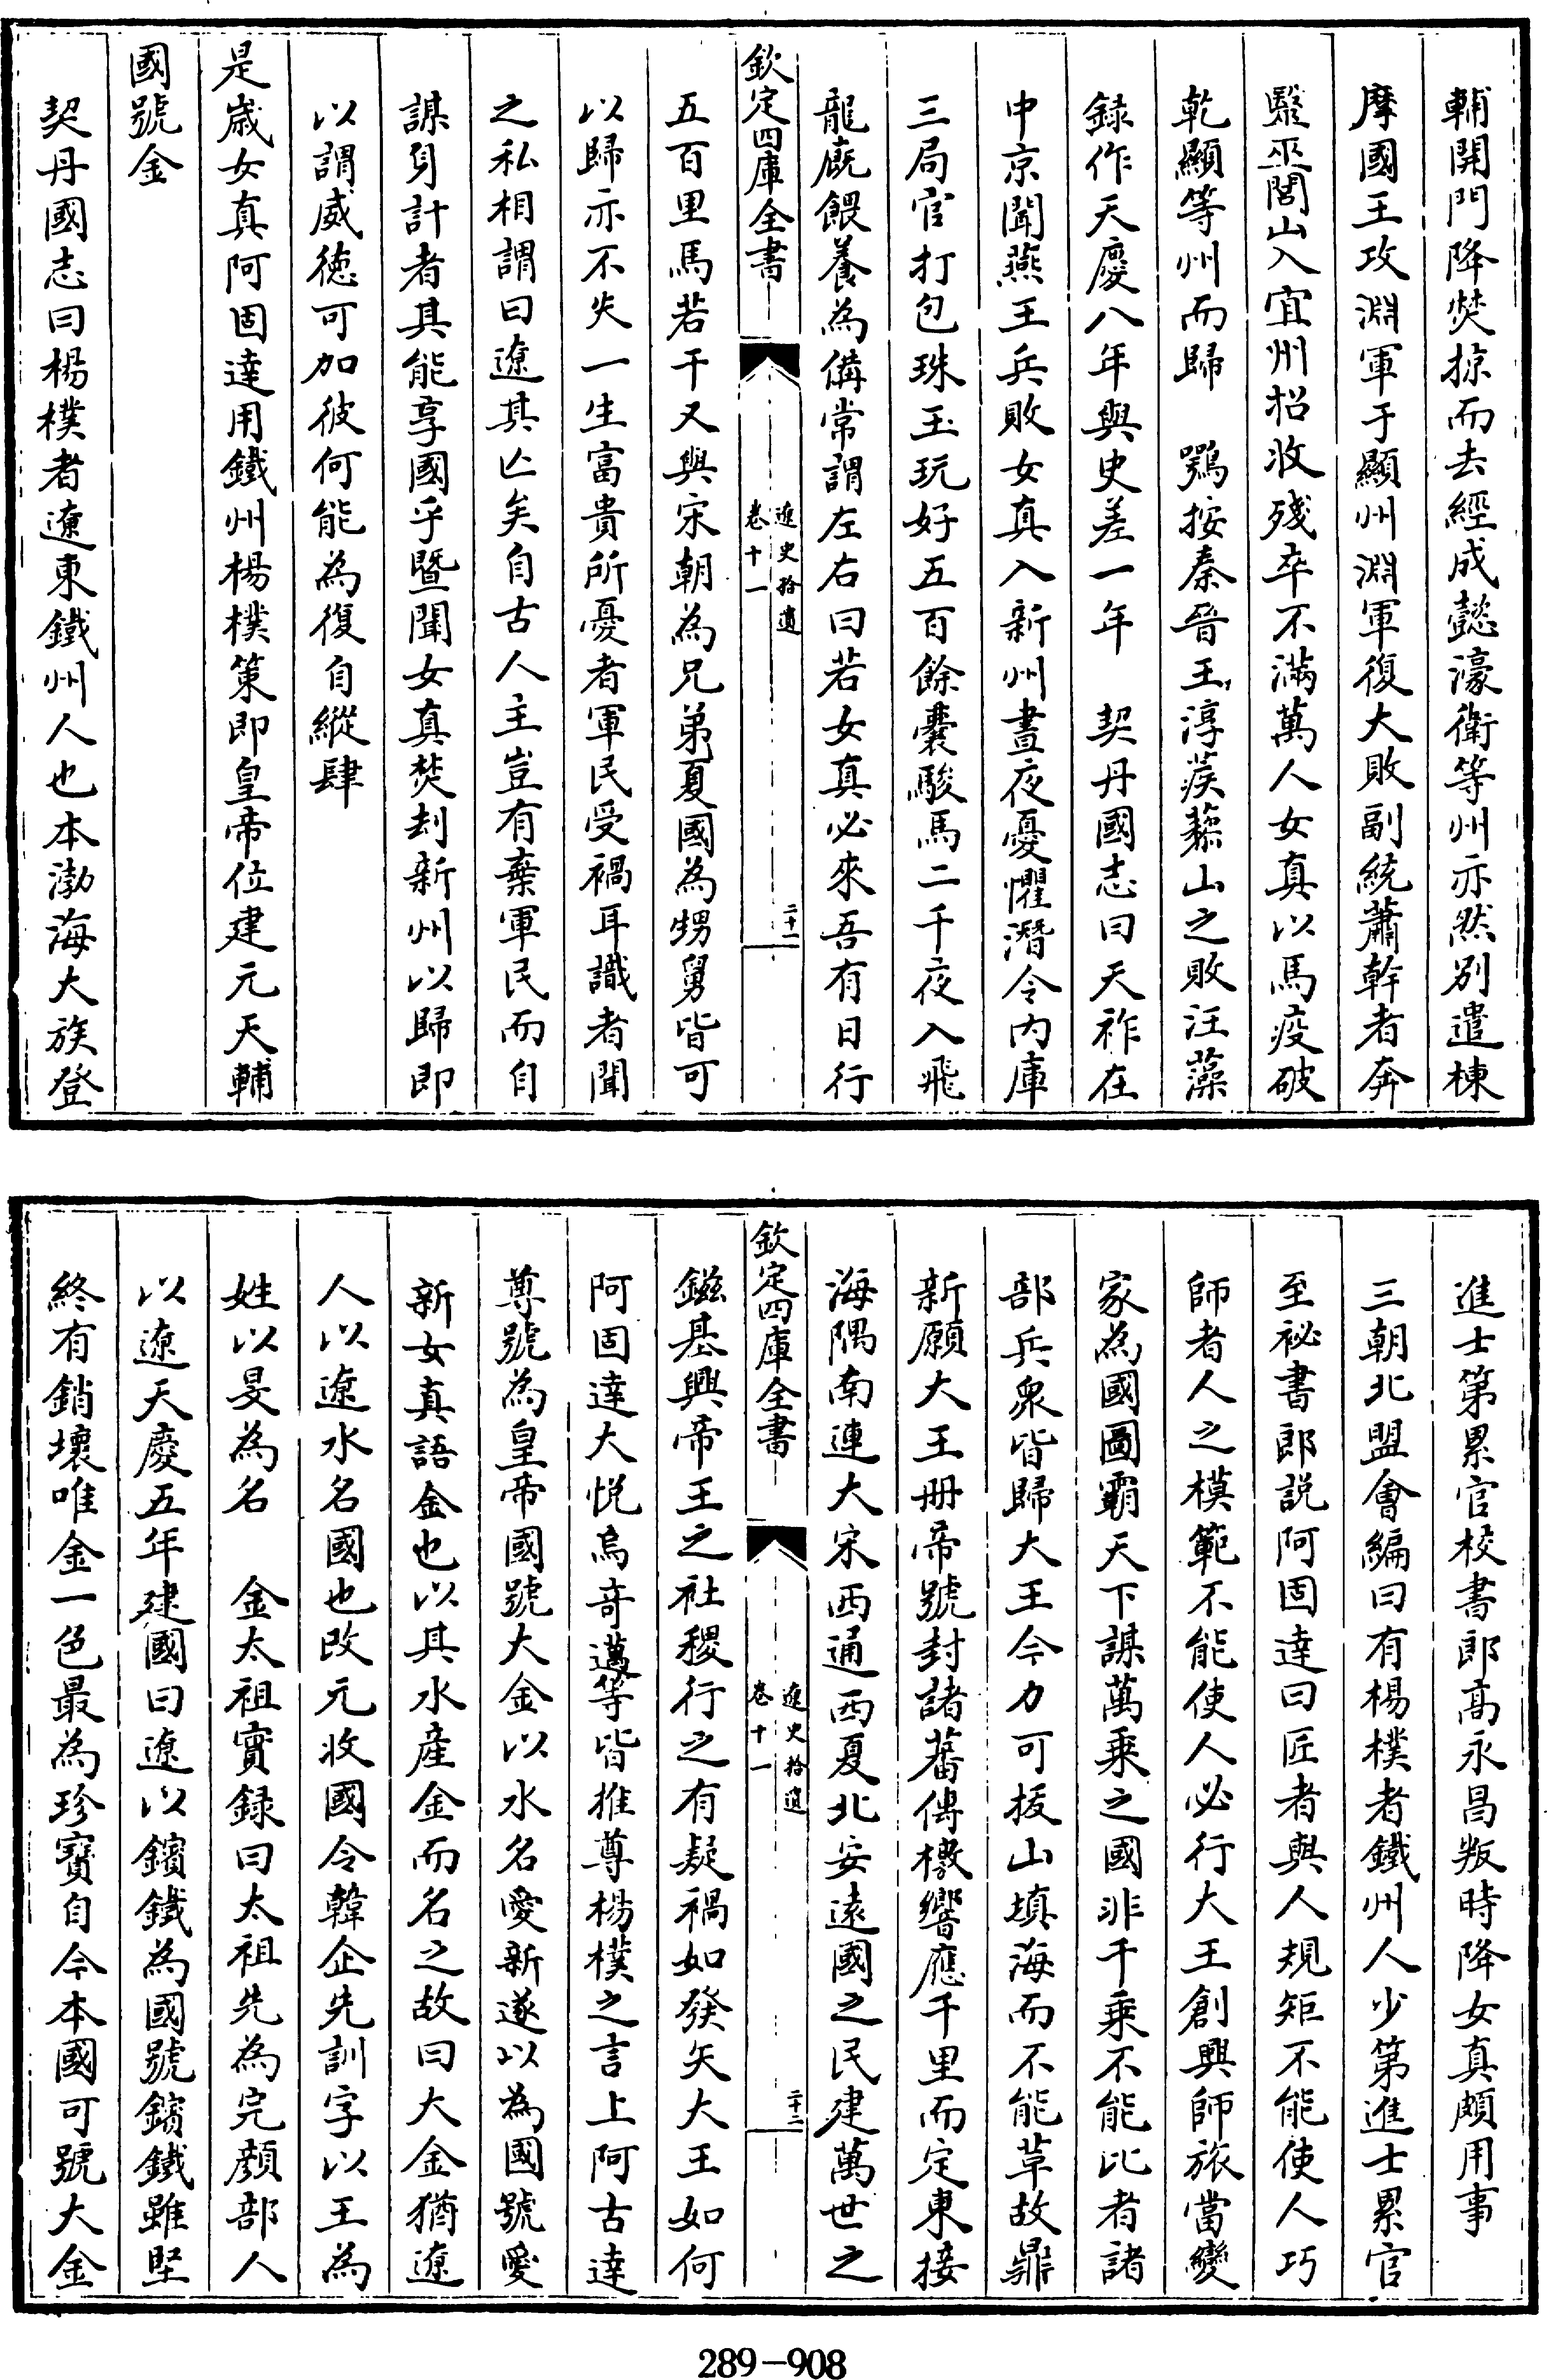 輔開門降焚掠而去經成懿濠衛等州亦然别遣棟
摩國王攻淵軍于顯州淵軍復大敗副統蕭幹者奔
毉巫閭山入宜州招收殘卒不滿萬人女真以馬疫破
乾顯等州而歸　鶚按秦晉王淳蒺藜山之敗汪藻
録作天慶八年與史差一年　契丹國志曰天祚在
中京聞燕王兵敗女真入新州晝夜憂懼潛令内庫
三局官打包珠玉玩好五百餘囊駿馬二千夜入飛
龍廐餵養為備常謂左右曰若女真必來吾有日行
欽定四庫全書
遼史拾遺
卷十一
二十一
五百里馬若干又與宋朝為兄弟夏國為甥舅皆可
以歸亦不失一生富貴所憂者軍民受禍耳識者聞
之私相謂曰遼其亡矣自古人主豈有棄軍民而自
謀身計者其能享國乎暨聞女真焚刦新州以歸即
以謂威徳可加彼何能為復自縱肆
是嵗女真阿固達用鐵州楊樸策即皇帝位建元天輔
國號金
契丹國志曰楊樸者遼東鐵州人也本渤海大族登
進士第累官校書郎高永昌叛時降女真頗用事
三朝北盟會編曰有楊樸者鐵州人少第進士累官
至祕書郎説阿固達曰匠者與人規矩不能使人巧
師者人之模範不能使人必行大王創興師旅當變
家為國圖霸天下謀萬乗之國非千乗不能比者諸
部兵衆皆歸大王今力可拔山填海而不能革故鼎
新願大王册帝號封諸蕃傳檄響應千里而定東接
海隅南連大宋西通西夏北安遠國之民建萬世之
欽定四庫全書
遼史拾遺
卷十一
二十二
鎡基興帝王之社稷行之有疑禍如發矢大王如何
阿固達大悦烏奇邁等皆推尊楊樸之言上阿古達
尊號為皇帝國號大金以水名愛新遂以為國號愛
新女真語金也以其水産金而名之故曰大金猶遼
人以遼水名國也改元收國令韓企先訓字以王為
姓以旻為名　金太祖實録曰太祖先為完顔部人
以遼天慶五年建國曰遼以鑌鐵為國號鑌鐵雖堅
終有銷壞唯金一色最為珍寳自今本國可號大金
289-908